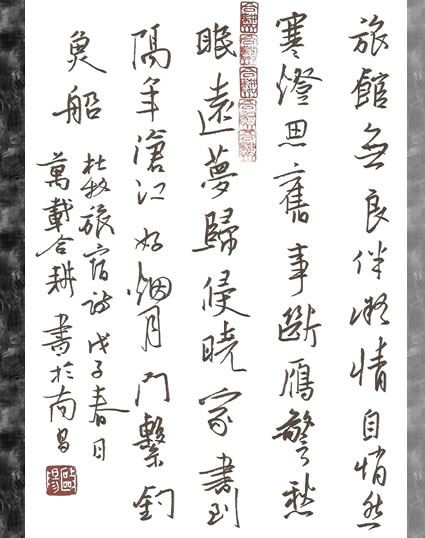 旅館無良伴凝情自悄然
寒燈思舊事斷鴈警愁
眠遠夢歸侵曉家書到
隔年滄江好烟月門繫釣
魚船
杜牧旅宿詩戊子春月
萬載合耕書於南昌